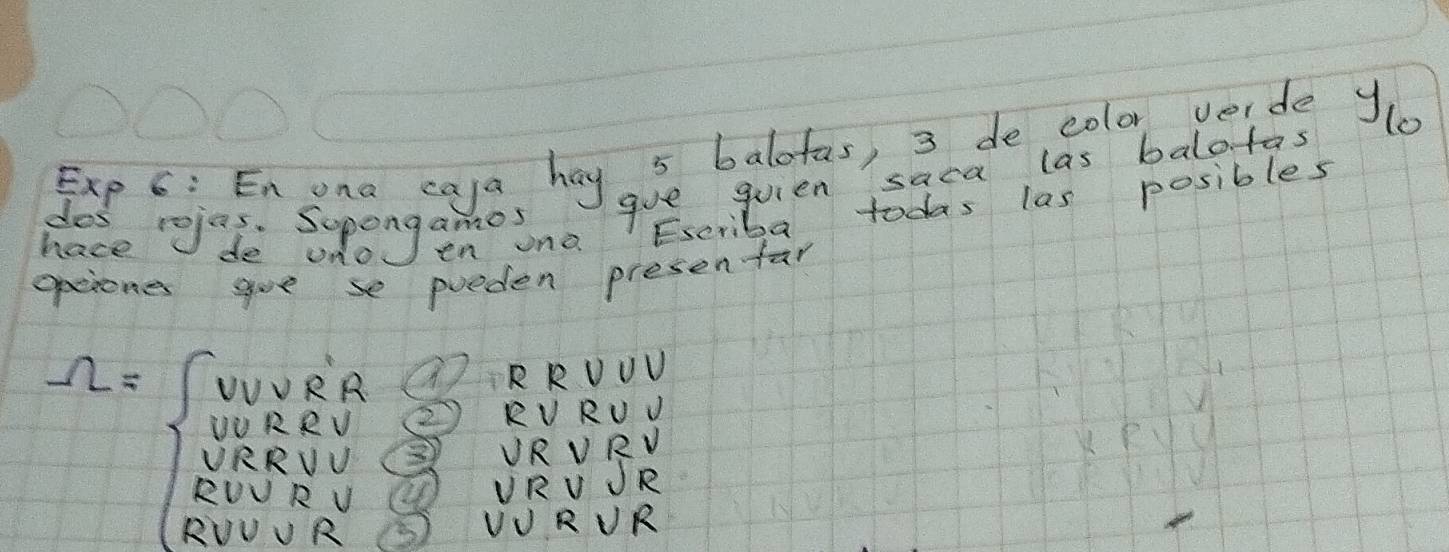 Exp 6: En una caja hay 5 balotas, 3 de color verde y
dos rojas. Supongamos que quien saca las balotas lo
hace de uno en una. Escriba todas las posibles
opciones que se pueden presentar
Ω = { VVVRR ① RRVVV
VVRRV ② RVRVV
VRRVV ③ VRVRV
RVVRV ④ VRVVR
RVVVR ⑤ VVRVR